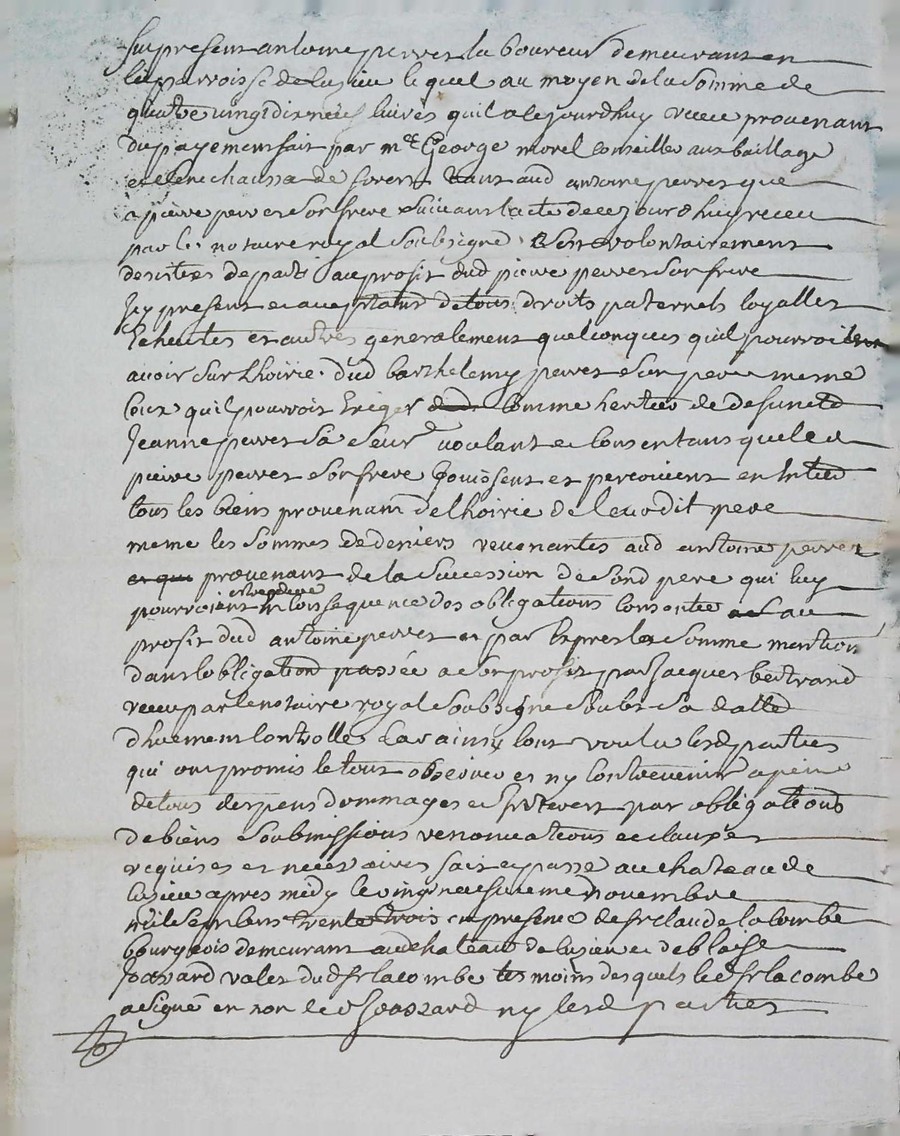 fut present antoine perret laboureur demeurant en
la parroisse de luzieu lequel au moyen de la somme de
quatre vingt dix neuf livres quil a le jourdhuy receu provenant
du payement fait par mre George morel conseiller aux bailliage
et senechaussé de forest aud antoine perret que
a pierre perret son frere suivant lacte de ce jourdhuy receu
par le notaire royal soubsigné de son volontairement
desister depart au profit dud pierre perret son frere
icy present et aceptant de tous droits paternels loyalles
echeutes et autres generalement quelconques quil pourroit
avoir sur lhoirie dud barthelemy perret son pere meme
ceux quil pourroit exiger comme heritier de defuncte
Jeanne perret sa seur voulant et consentant que led
pierre perret son frere jouissent et percoivent en
tous les biens provenant de lhoirie de leurdit pere
meme les sommes de deniers revenantes aud antoine perret
provenant de la sucession de sond pere qui luy
pourroient en consequence des obligations consentie au
profit dud antoine perret et par expres la somme mention
dans lobligation passée a son profit par Jacques bertrand
receu par le notaire royal soubsigné soubs sa datte
dhuement controllé car ainsy lont voulu lesd parties
qui ont promis le tout observer et ny contrevenir a peine
de tous despens dommages et interest par obligations
de biens soubmissions renonciations et clauses
requises et necessaires fait et passé au chateau de
luzieu apres midy le vingt neufvieme novembre
mil sept cent trente trois en presence de sr claude lacombe
bourgeois demeurant aud chateau de luzieu et de blaise
Jossard valet dud sr lacombe temoins desquels led sr lacombe
a signé et non led Jossard ny lesd parties